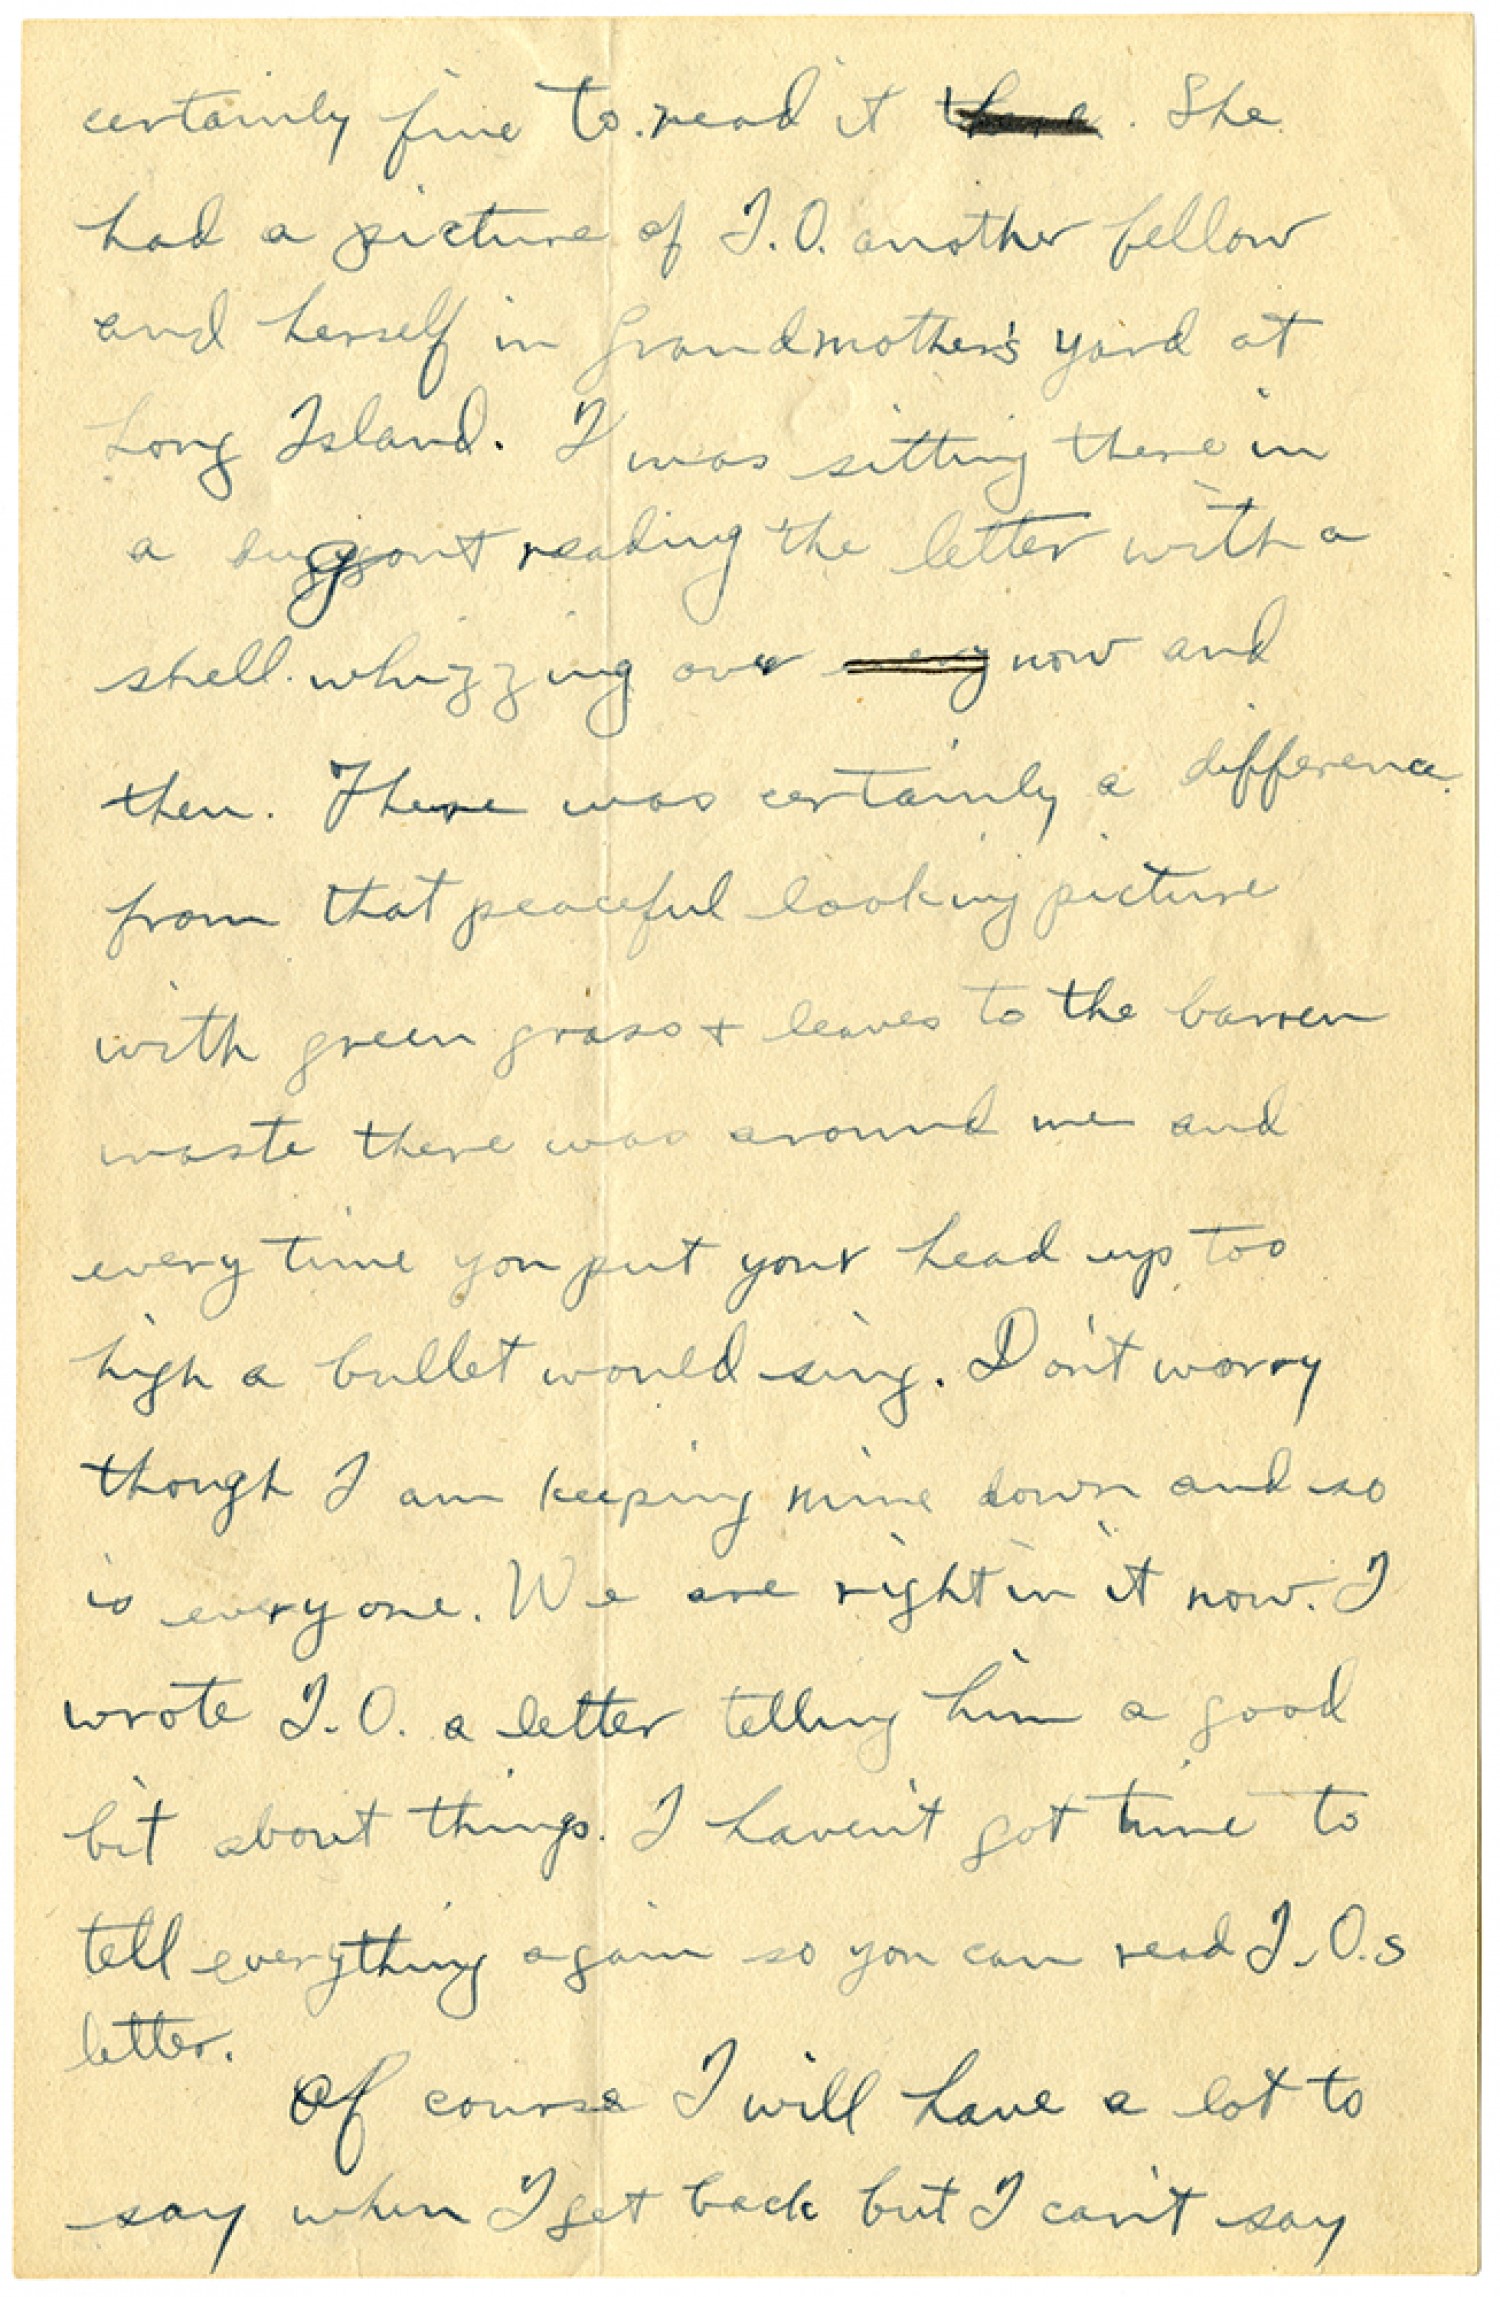 certainly fine to read it there. She
had a picture of J.O. another fellow
and herself in Grandmother's yard at
Long Island. I was sitting there in
a dugout reading the letter with a
shell whizzing over every now and
then. There was certainly a difference
from that peaceful looking picture
with green grass + leaves to the barren
waste there was around me and
every time you put your head up too
high a bullet would sing. Don't worry
though I am keeping mine down and so
is everyone. We are right in it now. I
wrote J.O. a letter telling him a good
bit about things. I haven't got time to
tell everything again so you can read J.O.s
letter.
Of course I will have a lot to
say when I get back but I can't say